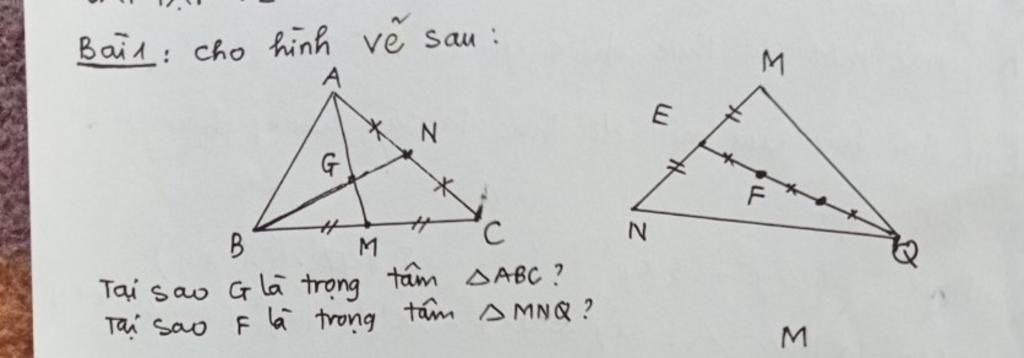 Bài 1: cho hình vẽ sau:
A
N
G
B
M
C
M
E
F
N
Q
Tại sao G là trọng tâm △ABC?
Tại sao F là trọng tâm △MNQ?
M